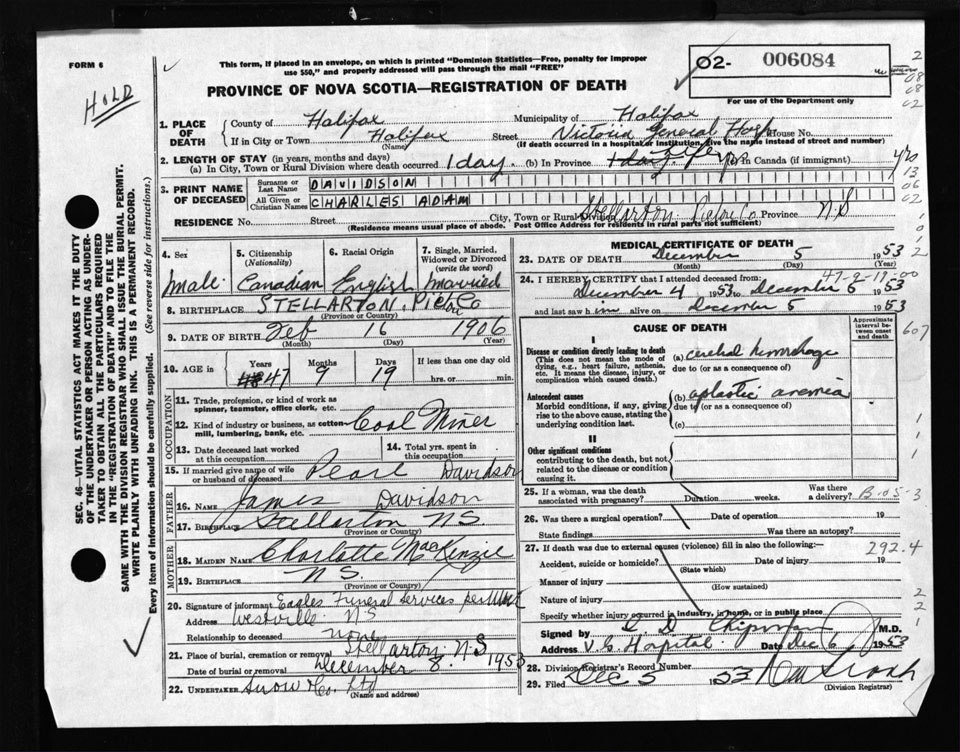 FORM 6
This form, if placed in an envelope, on which is printed "Dominion Statistics—Free, penalty for improper
use $50," and properly addressed will pass through the mail "FREE"
O2- 006084
For use of the Department only
HOLD
PROVINCE OF NOVA SCOTIA—REGISTRATION OF DEATH
1. PLACE OF DEATH
County of Halifax Municipality of Halifax
If in City or Town Halifax Street Victoria General Hosp House No.
(Name) (If death occurred in a hospital or institution, give the name instead of street and number)
2. LENGTH OF STAY (in years, months and days)
(a) In City, Town or Rural Division where death occurred 1 day. (b) In Province (c) In Canada (if immigrant)
3. PRINT NAME OF DECEASED
Surname or Last Name DAVIDSON
All Given or Christian Names CHARLES ADAM
RESIDENCE No. Street City, Town or Rural Division Stellarton Pictou Co Province N.S
(Residence means usual place of abode. Post Office Address for residents in rural parts not sufficient)
4. Sex 5. Citizenship (Nationality) 6. Racial Origin 7. Single, Married, Widowed or Divorced (write the word)
male Canadian English married
8. BIRTHPLACE STELLARTON, Pictou Co
(Province or Country)
9. DATE OF BIRTH Feb 16 1906
(Month) (Day) (Year)
10. AGE in Years Months Days If less than one day
47 9 19 hrs. or min.
OCCUPATION
11. Trade, profession or kind of work as
spinner, teamster, office clerk, etc.
12. Kind of industry or business, as cotton
mill, lumbering, bank, etc. Coal Miner
13. Date deceased last worked at this occupation
14. Total yrs. spent in this occupation
15. If married give name of wife
or husband of deceased Pearl Davidson
FATHER
16. NAME James Davidson
17. BIRTHPLACE Stellarton N.S
(Province or Country)
MOTHER
18. MAIDEN NAME Charlotte MacKenzie
19. BIRTHPLACE N.S.
(Province or Country)
20. Signature of informant Eagles Funeral Services per
Address Westville N S
Relationship to deceased none
21. Place of burial, cremation or removal Stellarton N.S
Date of burial or removal December 8 1953
22. UNDERTAKER Snow & Co. Ltd
(Name and address)
MEDICAL CERTIFICATE OF DEATH
23. DATE OF DEATH December 5 1953
(Month) (Day) (Year)
24. I HEREBY CERTIFY that I attended deceased from: 47-9-19-00
December 4 1953 to December 5 1953
and last saw him alive on December 5 1953
CAUSE OF DEATH
Approximate interval between onset and death
607
I
Disease or condition directly leading to death
(This does not mean the mode of dying, e.g., heart failure, asthenia, etc. It means the disease, injury, or complication which caused death.)
(a) cerebral hemorrhage
due to (or as a consequence of)
Antecedent causes
Morbid conditions, if any, giving rise to the above cause, stating the underlying condition last.
(b) aplastic anemia
due to (or as a consequence of)
(c)
II
Other significant conditions
contributing to the death, but not related to the disease or condition causing it.
25. If a woman, was the death associated with pregnancy? Duration weeks. Was there a delivery? B-05-3
26. Was there a surgical operation? Date of operation 19
State findings Was there an autopsy?
27. If death was due to external causes (violence) fill in also the following:— 292.4
Accident, suicide or homicide? Date of injury 19
(State which)
Manner of injury
(How sustained)
Nature of injury
Specify whether injury occurred in industry, in home, or in public place
Signed by D. D Chipman M.D.
Address V.G. Hospital Date Dec 6 1953
28. Division Registrar's Record Number
29. Filed Dec 5 1953
(Division Registrar)
SEC. 46—VITAL STATISTICS ACT MAKES IT THE DUTY
OF THE UNDERTAKER OR PERSON ACTING AS UNDER-
TAKER TO OBTAIN ALL THE PARTICULARS REQUIRED
IN THE "REGISTRATION OF DEATH" AND TO FILE THE
SAME WITH THE DIVISION REGISTRAR WHO SHALL ISSUE THE BURIAL PERMIT.
WRITE PLAINLY WITH UNFADING INK. THIS IS A PERMANENT RECORD.
Every item of information should be carefully supplied. (See reverse side for instructions.)